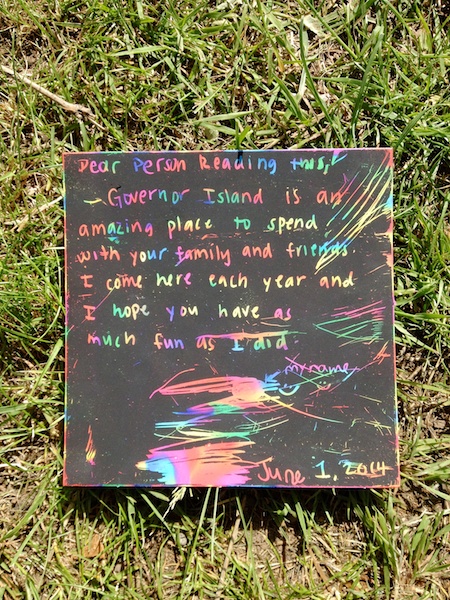 Dear Person Reading this,
- Governor Island is an
amazing place to spend
with your family and friends.
I come here each year and
I hope you have as
much fun as I did.
my name
June 1, 2014